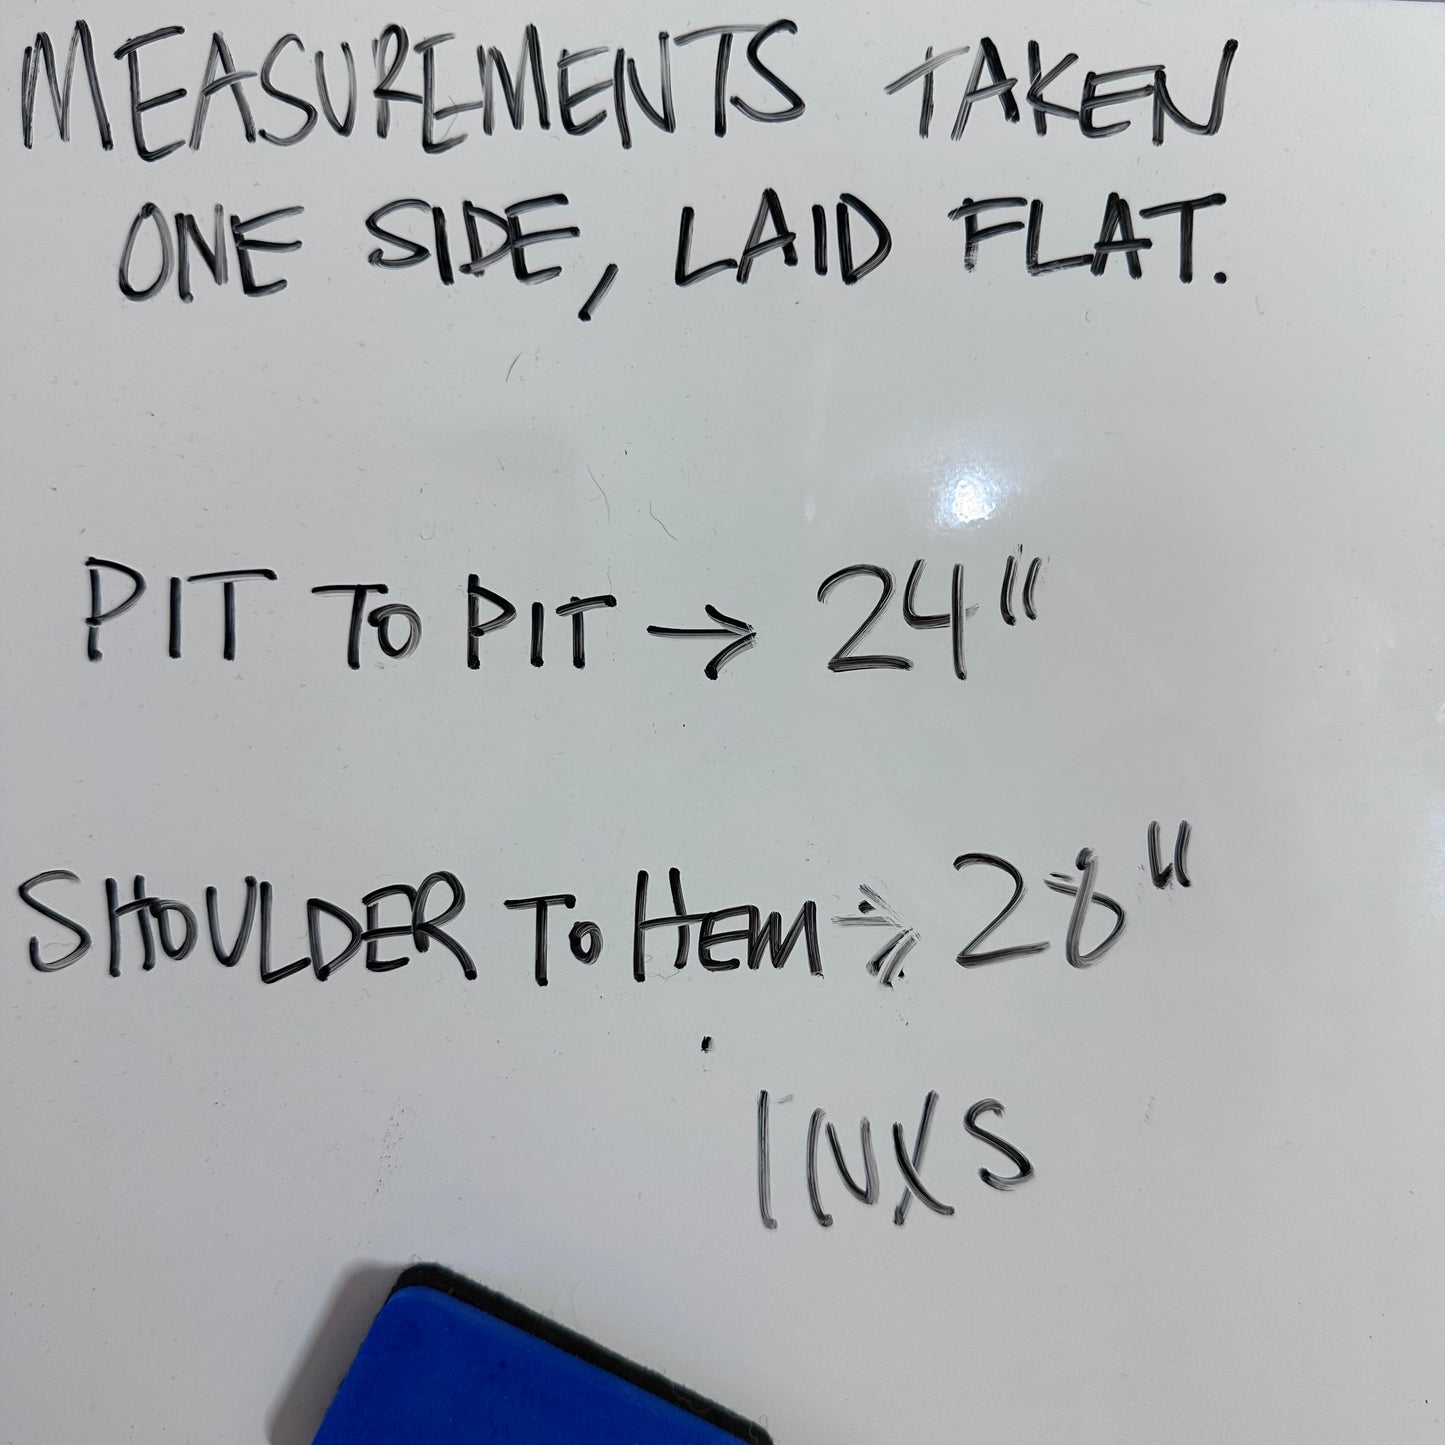 MEASUREMENTS TAKEN
ONE SIDE, LAID FLAT.
PIT TO PIT → 24"
SHOULDER TO HEM → 28"
INXS